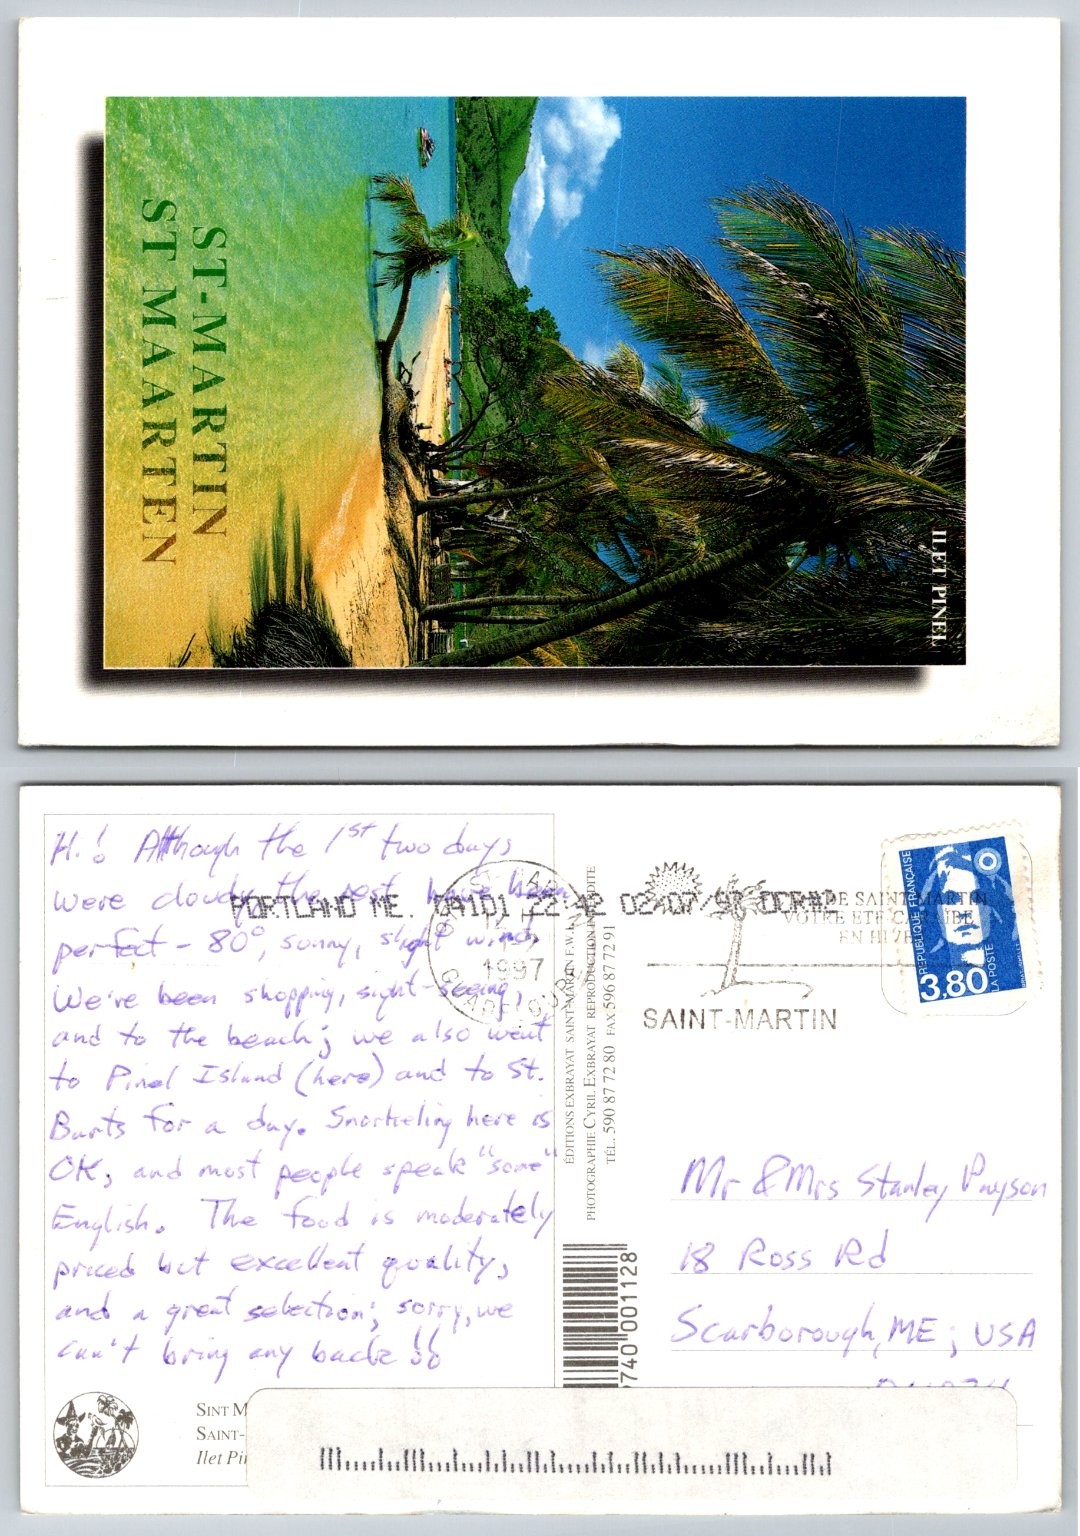 ST-MARTIN
ST MAARTEN
ILET PINEL
Hi! Although the 1st two days
were cloudy, the rest have been
perfect - 80°, sunny, slight winds.
We've been shopping, sight-seeing,
and to the beach; we also went
to Pinel Island (here) and to St.
Barts for a day. Snorkeling here is
OK, and most people speak "some"
English. The food is moderately
priced but excellent quality,
and a great selection; sorry, we
can't bring any back!!
PORTLAND ME. 04101 22:42 02/07/97
1997
GUADELOUPE
SAINT-MARTIN
DE SAINT-MARTIN
VOTRE ETE CARAIBE
EN HIVER
REPUBLIQUE FRANÇAISE
3,80
LA POSTE
ÉDITIONS EXBRAYAT SAINT-MARTIN F.W.I.
PHOTOGRAPHIE CYRIL EXBRAYAT REPRODUCTION INTERDITE
TÉL. 590 87 72 80 FAX 596 87 72 91
740 001128
Mr & Mrs Stanley Payson
18 Ross Rd
Scarborough, ME; USA
SINT M
SAINT-
Ilet Pi